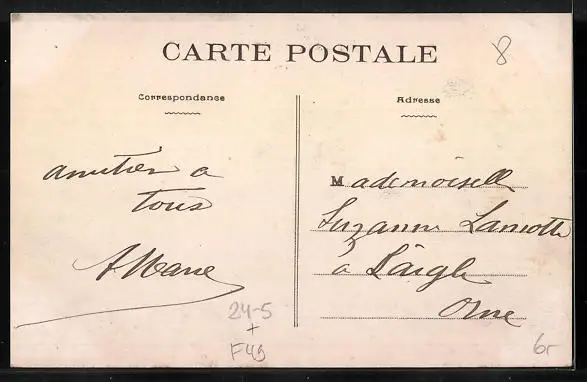 CARTE POSTALE
8
Correspondance
Adresse
amitiés a
tous
Mademoiselle
Suzanne Lamotte
à Laigle
Orne
24-5
+
F49
6r